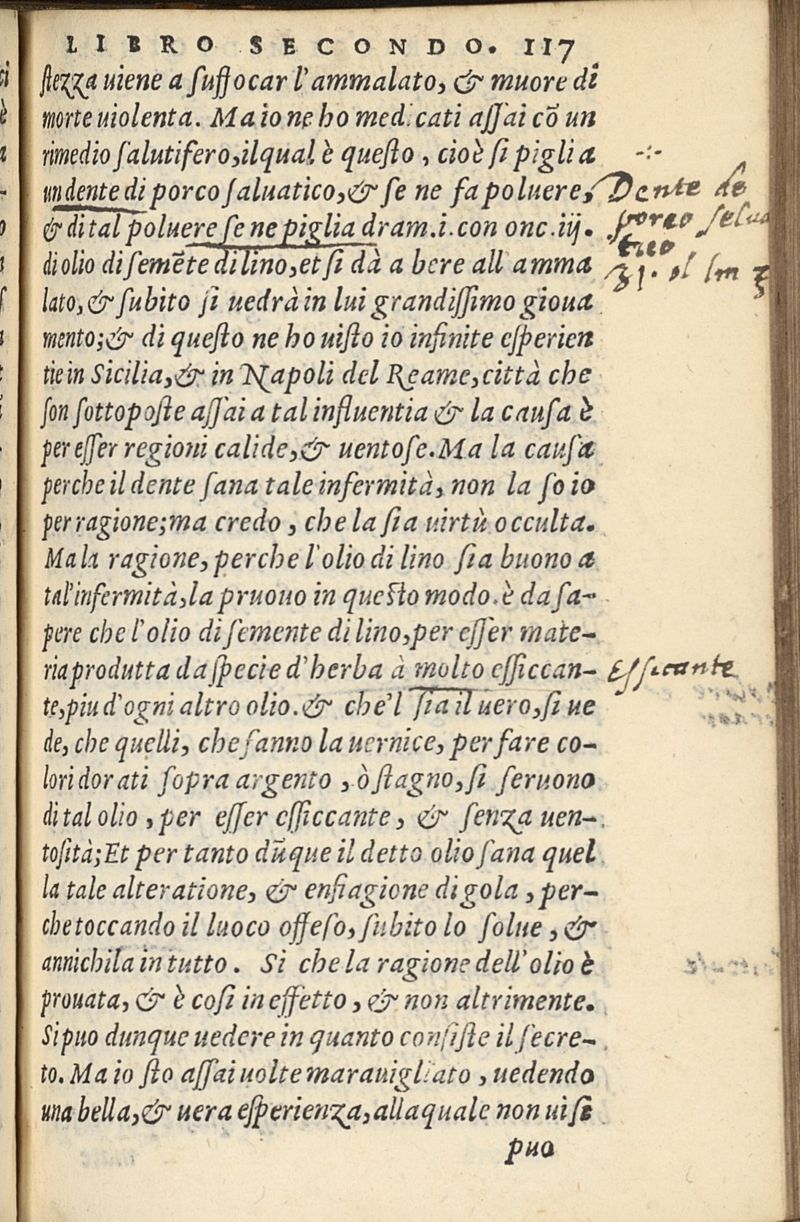 LIBRO SECONDO. 117
stezza uiene a suffocar l'ammalato, & muore di
morte uiolenta. Ma io ne ho medicati assai cō un
rimedio salutifero, ilqual è questo, cioè si piglia
un dente di porco saluatico, & se ne fa poluere,
& di tal poluere se ne piglia dram.i. con onc.iij.
di olio di semēte di lino, et si dà a bere all'amma
lato, & subito si uedrà in lui grandissimo gioua
mento; & di questo ne ho uisto io infinite esperien
tie in Sicilia, & in Napoli del Reame, città che
son sottoposte assai a tal influentia & la causa è
per esser regioni calide, & uentose. Ma la causa
perche il dente sana tale infermità, non la so io
per ragione; ma credo, che la sia uirtù occulta.
Ma la ragione, perche l'olio di lino sia buono a
tal'infermità, la pruouo in questo modo. è da sa-
pere che l'olio di semente di lino, per esser mate-
ria produtta da specie d'herba à molto essiccan-
te, piu d'ogni altro olio. & che'l sia il uero, si ue
de, che quelli, che fanno la uernice, per fare co-
lori dorati sopra argento, ò stagno, si seruono
di tal olio, per esser essiccante, & senza uen-
tosità; Et per tanto dūque il detto olio sana quel
la tale alteratione, & enfiagione di gola, per-
che toccando il luoco offeso, subito lo solue, &
annichila in tutto. Si che la ragione dell'olio è
prouata, & è cosi in effetto, & non altrimente.
Si puo dunque uedere in quanto consiste il secre-
to. Ma io sto assai uolte marauigliato, uedendo
una bella, & uera esperienza, alla quale non ui si
puo
Dente de
porco selua
tico
Essicante